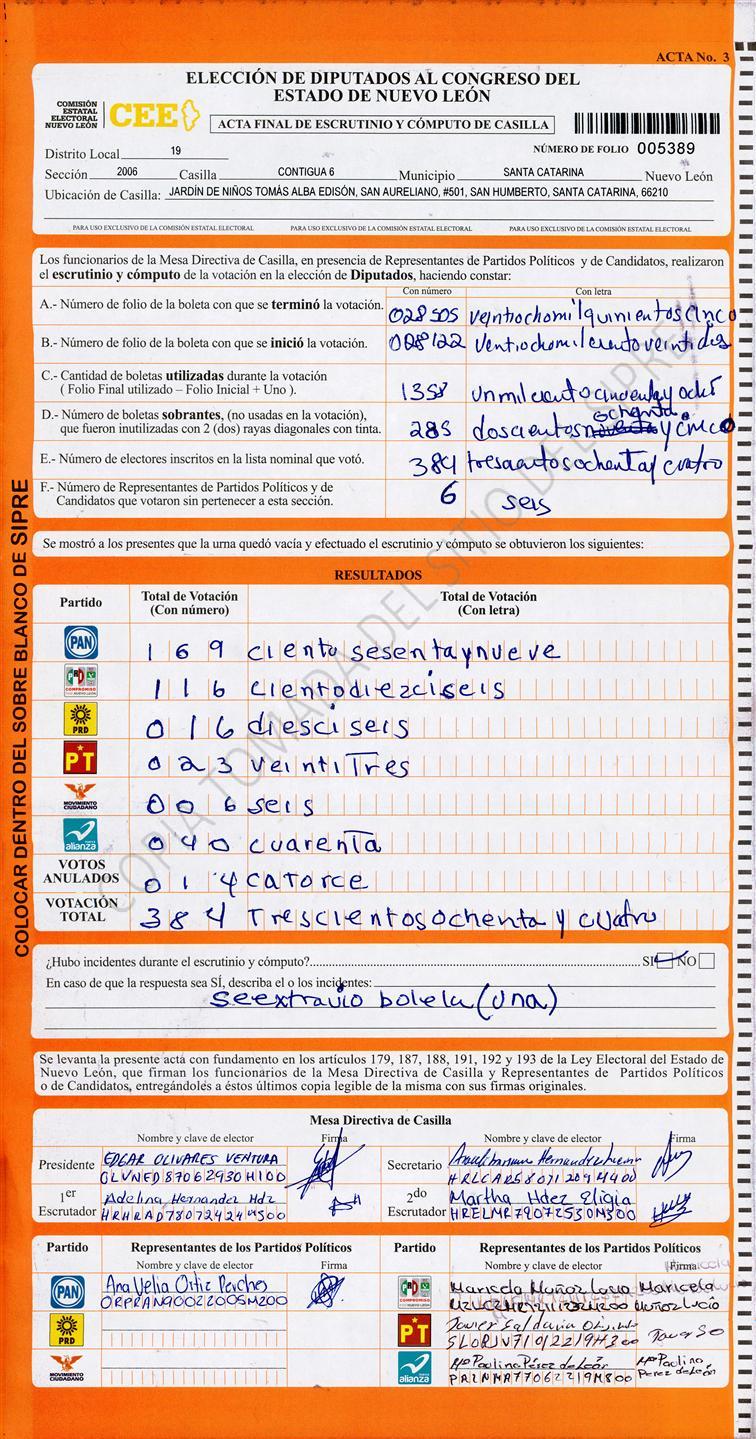 ACTA No. 3
ELECCIÓN DE DIPUTADOS AL CONGRESO DEL
ESTADO DE NUEVO LEÓN
COMISIÓN
ESTATAL
ELECTORAL
NUEVO LEÓN
CEE
ACTA FINAL DE ESCRUTINIO Y CÓMPUTO DE CASILLA
Distrito Local 19
NÚMERO DE FOLIO 005389
Sección 2006 Casilla CONTIGUA 6 Municipio SANTA CATARINA Nuevo León
Ubicación de Casilla: JARDÍN DE NIÑOS TOMÁS ALBA EDISÓN, SAN AURELIANO, #501, SAN HUMBERTO, SANTA CATARINA, 66210
PARA USO EXCLUSIVO DE LA COMISIÓN ESTATAL ELECTORAL PARA USO EXCLUSIVO DE LA COMISIÓN ESTATAL ELECTORAL PARA USO EXCLUSIVO DE LA COMISIÓN ESTATAL ELECTORAL
Los funcionarios de la Mesa Directiva de Casilla, en presencia de Representantes de Partidos Políticos y de Candidatos, realizaron
el escrutinio y cómputo de la votación en la elección de Diputados, haciendo constar:
Con número Con letra
A.- Número de folio de la boleta con que se terminó la votación. 028505 veintiochomilquinientoscinco
B.- Número de folio de la boleta con que se inició la votación. 028122 ventiochomilcientoveintidos
C.- Cantidad de boletas utilizadas durante la votación
( Folio Final utilizado – Folio Inicial + Uno ). 1358 unmilcientocincuentayocho
D.- Número de boletas sobrantes, (no usadas en la votación),
que fueron inutilizadas con 2 (dos) rayas diagonales con tinta. 285 doscientos ochenta y cinco
E.- Número de electores inscritos en la lista nominal que votó. 384 trescientosochentay cuatro
F.- Número de Representantes de Partidos Políticos y de
Candidatos que votaron sin pertenecer a esta sección. 6 seis
Se mostró a los presentes que la urna quedó vacía y efectuado el escrutinio y cómputo se obtuvieron los siguientes:
RESULTADOS
Partido Total de Votación Total de Votación
(Con número) (Con letra)
PAN 169 cientosesentaynueve
PRD COMPROMISO 116 cientodiezciseis
PRD 016 diesciseis
PT 023 veintitres
MOVIMIENTO CIUDADANO 006 seis
alianza 040 cuarenta
VOTOS
ANULADOS 014 catorce
VOTACIÓN
TOTAL 384 Trescientosochenta y cuatro
¿Hubo incidentes durante el escrutinio y cómputo? SI NO
En caso de que la respuesta sea SÍ, describa el o los incidentes:
seextravio boleta (una)
Se levanta la presente acta con fundamento en los artículos 179, 187, 188, 191, 192 y 193 de la Ley Electoral del Estado de
Nuevo León, que firman los funcionarios de la Mesa Directiva de Casilla y Representantes de Partidos Políticos
o de Candidatos, entregándoles a éstos últimos copia legible de la misma con sus firmas originales.
Mesa Directiva de Casilla
Nombre y clave de elector Firma Nombre y clave de elector Firma
Presidente EDGAR OLIVARES VENTURA Secretario Hernandez
OLVNED87062930H100
1er Escrutador Adelina Hernandez Hdz 2do Escrutador Martha Hdez Eligia
HRHRAD78072424M500 HRELMR79072530M300
Partido Representantes de los Partidos Políticos Partido Representantes de los Partidos Políticos
Nombre y clave de elector Firma Nombre y clave de elector Firma
PAN Ana Velia Ortiz Perches COMPROMISO Maricela Muñoz Lucio Maricela
ORPRAN90022005M200 Muñoz Lucio
PRD PT Javier Saldaña
MOVIMIENTO CIUDADANO alianza Ma Paulina Pérez de León Ma Paulina
Perez de León
COLOCAR DENTRO DEL SOBRE BLANCO DE SIPRE
COPIA TOMADA DEL SITIO DEL SIPRE